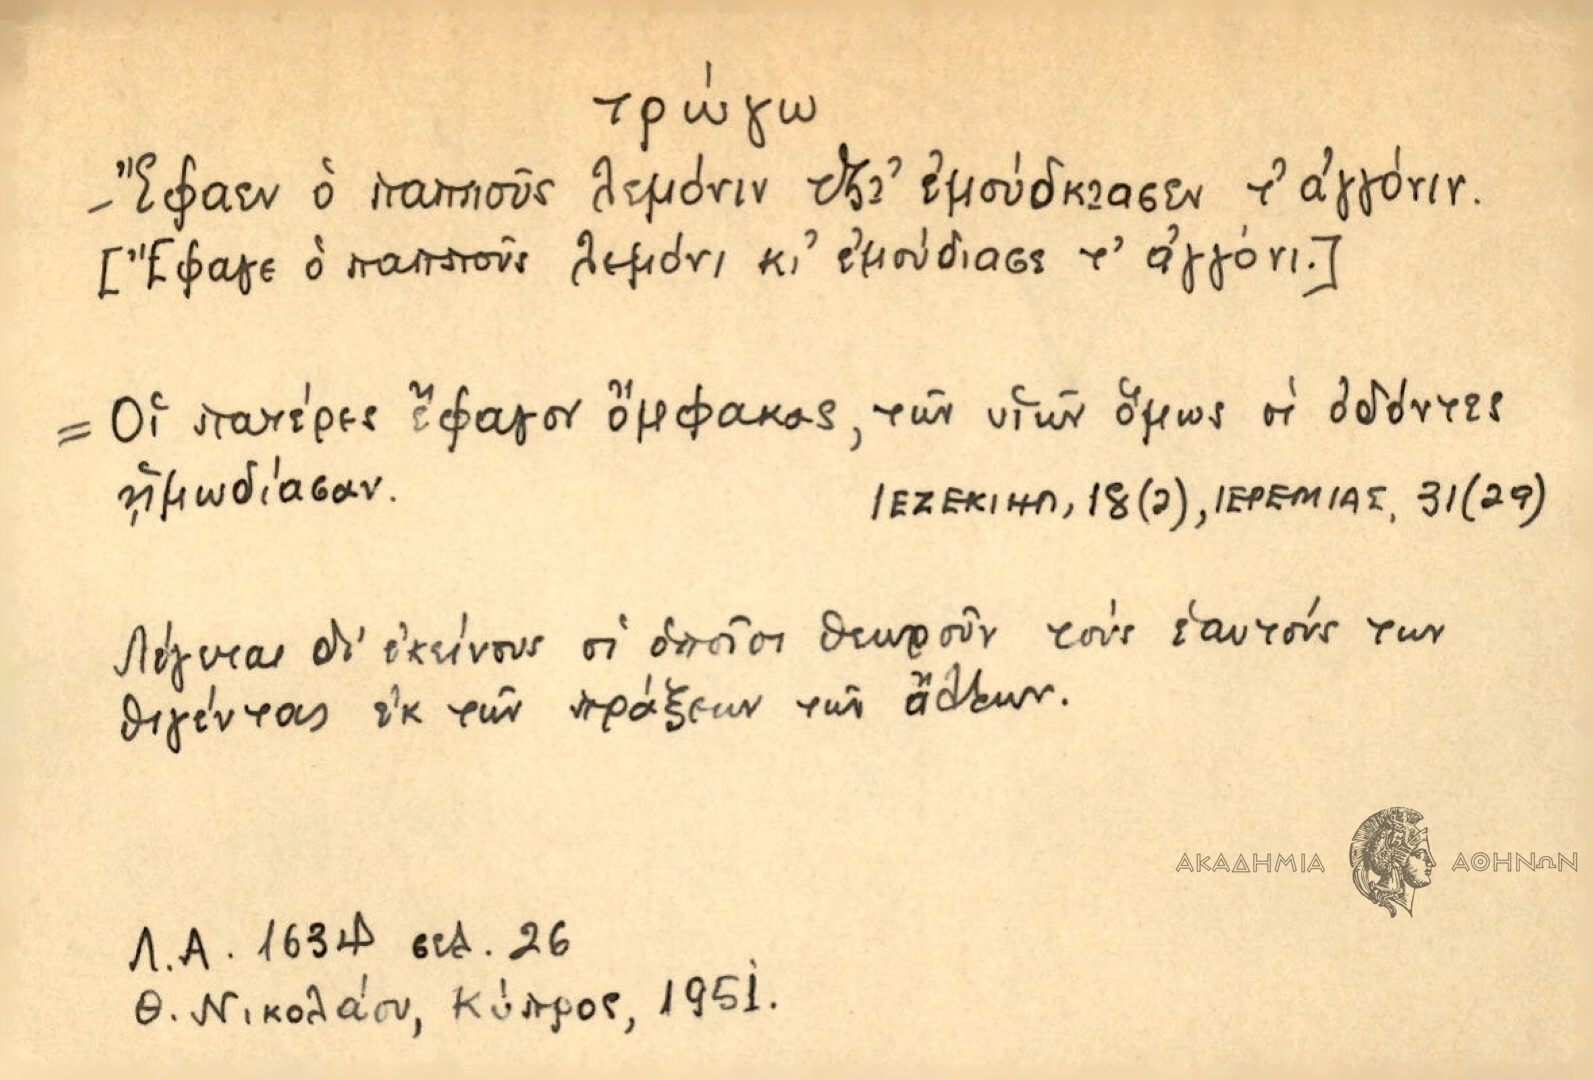 τρώγω
– Ἔφαεν ὁ παπποῦς λεμόνιν τζι' ἐμούδκιασεν τ' ἀγγόνιν.
[Ἔφαγε ὁ παπποῦς λεμόνι κι' ἐμούδιασε τ' ἀγγόνι.]
= Οἱ πατέρες ἔφαγον ὄμφακας, τῶν υἱῶν ὅμως οἱ ὀδόντες
ᾑμωδίασαν.
ΙΕΖΕΚΙΗΛ, 18(2), ΙΕΡΕΜΙΑΣ, 31(29)
Λέγεται δι' ἐκείνους οἱ ὁποῖοι θεωροῦν τοὺς ἑαυτούς των
θιγέντας ἐκ τῶν πράξεων τῶν ἄλλων.
ΑΚΑΔΗΜΙΑ ΑΘΗΝΩΝ
Λ.Α. 1634 σελ. 26
Θ. Νικολάου, Κύπρος, 1951.